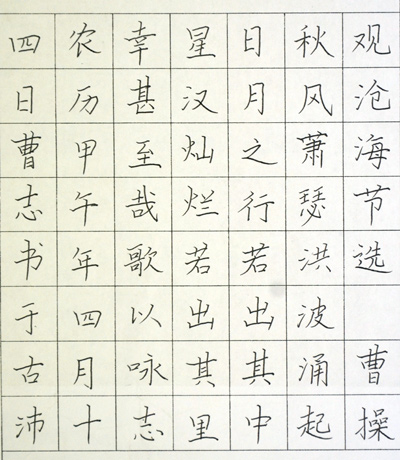 观沧海节选 曹操
秋风萧瑟洪波涌起
日月之行若出其中
星汉灿烂若出其里
幸甚至哉歌以咏志
农历甲午年四月十
四日曹志书于古沛